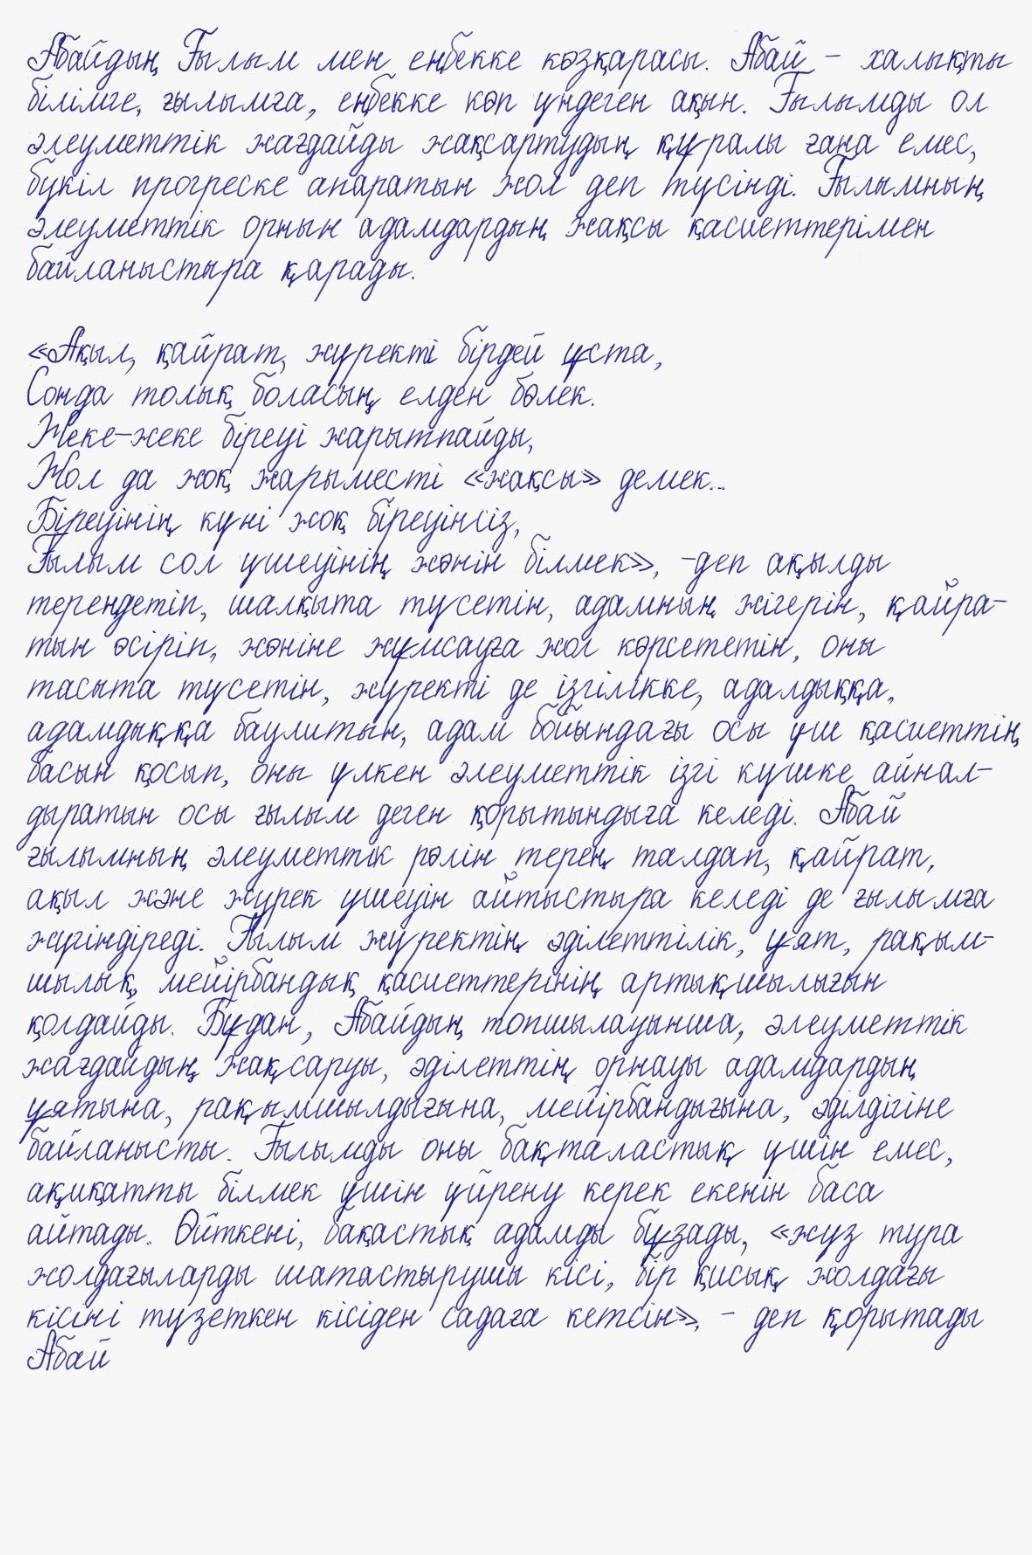 Абайдың Ғылым мен еңбекке көзқарасы. Абай – халықты
білімге, ғылымға, еңбекке көп үндеген ақын. Ғылымды ол
әлеуметтік жағдайды жақсартудың құралы ғана емес,
бүкіл прогреске апаратын жол деп түсінді. Ғылымның
әлеуметтік орнын адамдардың жақсы қасиеттерімен
байланыстыра қарады.
«Ақыл, қайрат, жүректі бірдей ұста,
Сонда толық боласың елден бөлек.
Жеке-жеке біреуі жарытпайды,
Жол да жоқ жарыместі «жақсы» демек..
Біреуінің күні жоқ біреуінсіз,
Ғылым сол үшеуінің жөнін білмек», -деп ақылды
тереңдетіп, шалқыта түсетін, адамның жігерін, қайра-
тын өсіріп, жөніне жұмсауға жол көрсететін, оны
тасыта түсетін, жүректі де ізгілікке, адалдыққа,
адамдыққа баулитын, адам бойындағы осы үш қасиеттің
басын қосып, оны үлкен әлеуметтік ізгі күшке айнал-
дыратын осы ғылым деген қорытындыға келеді. Абай
ғылымның әлеуметтік рөлін терең талдап, қайрат,
ақыл және жүрек үшеуін айтыстыра келеді де ғылымға
жүгіндіреді. Ғылым жүректің әділеттілік, ұят, рақым-
шылық, мейірбандық қасиеттерінің артықшылығын
қолдайды. Бұдан, Абайдың топшылауынша, әлеуметтік
жағдайдың жақсаруы, әділеттің орнауы адамдардың
ұятына, рақымшылдығына, мейірбандығына, әділдігіне
байланысты. Ғылымды оны бақталастық үшін емес,
ақиқатты білмек үшін үйрену керек екенін баса
айтады. Өйткені, бақастық адамды бұзады, «жүз тура
жолдағыларды шатастырушы кісі, бір қисық жолдағы
кісіні түзеткен кісіден садаға кетсін», – деп қорытады
Абай